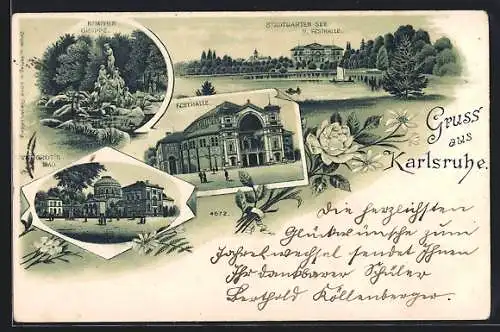 NYMPHEN
GRUPPE.
STADTGARTEN-SEE
U. FESTHALLE.
FESTHALLE.
VIERORDTS
BAD.
Gruss
aus
Karlsruhe.
4672.
Die herzlichsten
Glückwünsche zum
Jahreswechsel sendet Ihnen
Ihr dankbarer Schüler
Berthold Köllenberger.